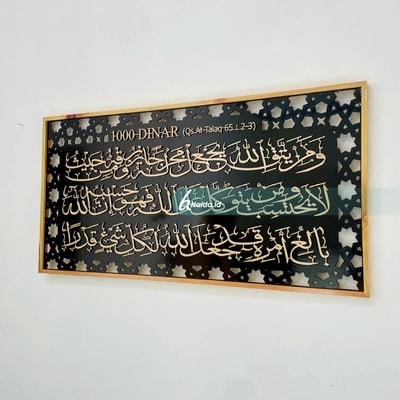 1000 DINAR (Qs.At-Talaq 65 : 2-3)
وَمَنْ يَتَّقِ اللَّهَ يَجْعَلْ لَهُ مَخْرَجًا وَيَرْزُقْهُ مِنْ حَيْثُ
لَا يَحْتَسِبُ وَمَنْ يَتَوَكَّلْ عَلَى اللَّهِ فَهُوَ حَسْبُهُ إِنَّ اللَّهَ
بَالِغُ أَمْرِهِ قَدْ جَعَلَ اللَّهُ لِكُلِّ شَيْءٍ قَدْرًا
Kaida.id